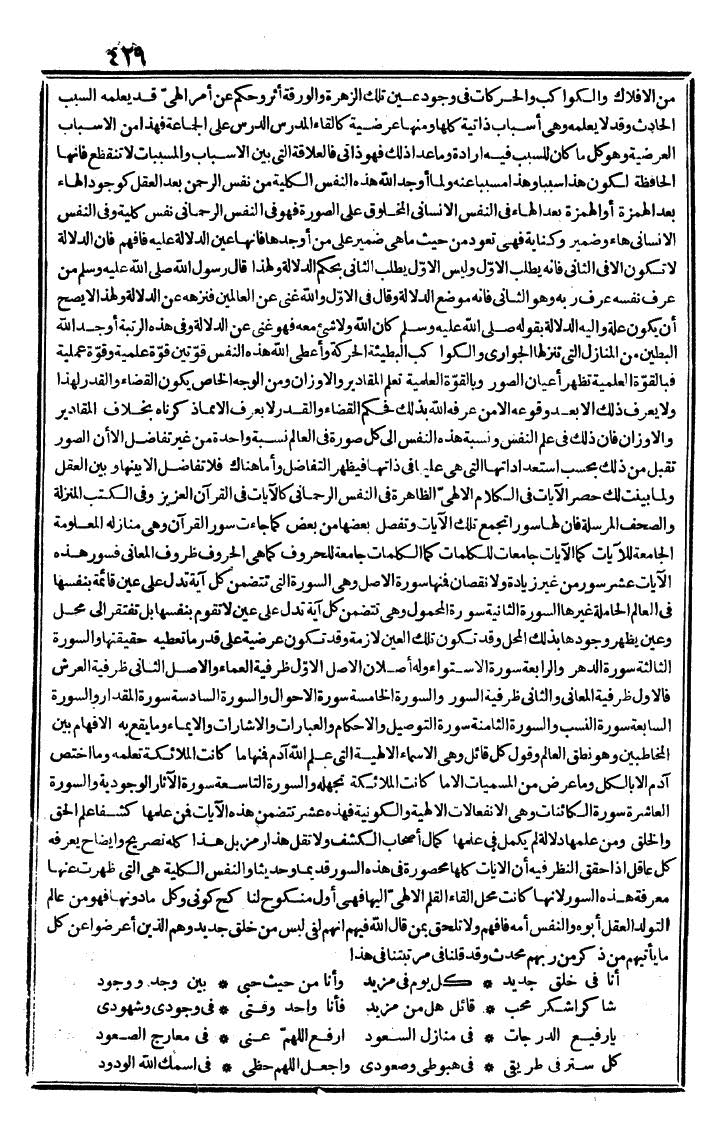 ٤٢٩
من الافلاك والكواكب والحركات فى وجود عين تلك الزهرة والورقة أثر وحكم عن أمر الهىّ قد يعلمه السبب
الحادث وقد لا يعلمه وهى أسباب ذاتية كلها ومنها عرضية كالقاء المدرس الدرس على الجماعة فهذا من الاسباب
العرضية وهو كل ما كان للسبب فيه ارادة وما عدا ذلك فهو ذاتى فالعلاقة التى بين الاسباب والمسببات لا تنقطع فانها
الحافظة لكون هذا سببا وهذا مسببا عنه ولما أوجد الله هذه النفس الكلية من نفس الرحمن بعد العقل كوجود الهاء
بعد الهمزة أو الهمزة بعد الهاء فى النفس الانسانى المخلوق على الصورة فهو فى النفس الرحمانى نفس كلية وفى النفس
الانسانى هاء وضمير وكناية فهى تعود من حيث ما هى ضمير على من أوجدها فانها عين الدلالة عليه فافهم فان الدلالة
لا تكون الا فى الثانى فانه يطلب الاوّل وليس الاوّل يطلب الثانى بحكم الدلالة ولهذا قال رسول الله صلى الله عليه وسلم من
عرف نفسه عرف ربه وهو الثانى فانه موضع الدلالة وقال فى الاوّل والله غنى عن العالمين فنزهه عن الدلالة ولهذا لا يصح
أن يكون علة واليه الدلالة بقوله صلى الله عليه وسلم كان الله ولا شئ معه فهو غنى عن الدلالة وفى هذه الرتبة أوجد الله
البطين من المنازل التى تنزلها الجوارى والكواكب البطيئة الحركة وأعطى الله هذه النفس قوّتين قوّة علمية وقوّة عملية
فبالقوّة العملية تظهر أعيان الصور وبالقوّة العلمية تعلم المقادير والاوزان ومن الوجه الخاص يكون القضاء والقدر لهذا
ولا يعرف ذلك الا بعد وقوعه الا من عرفه الله بذلك فحكم القضاء والقدر لا يعرف الا مما ذكرناه بخلاف المقادير
والاوزان فان ذلك فى علم النفس ونسبة هذه النفس الى كل صورة فى العالم نسبة واحدة من غير تفاضل الا أن الصور
تقبل من ذلك بحسب استعداداتها التى هى عليها فى ذاتها فيظهر التفاضل وأما هناك فلا تفاضل الا بينها وبين العقل
ولما بينت لك حصر الآيات فى الكلام الالهىّ الظاهرة فى النفس الرحمانى كالآيات فى القرآن العزيز وفى الكتب المنزلة
والصحف المرسلة فان لها سورا تجمع تلك الآيات وتفصل بعضها من بعض كما جاءت سور القرآن وهى منازله المعلومة
الجامعة للآيات كما الآيات جامعات للكلمات كما الكلمات جامعة للحروف كما هى الحروف ظروف المعانى فسور هذه
الآيات عشر سور من غير زيادة ولا نقصان فمنها سورة الاصل وهى السورة التى تتضمن كل آية تدل على عين قائمة بنفسها
فى العالم الحاملة غيرها السورة الثانية سورة المحمول وهى تتضمن كل آية تدل على عين لا تقوم بنفسها بل تفتقر الى محل
وعين يظهر وجودها بذلك المحل وقد تكون تلك العين لازمة وقد تكون عرضية على قدر ما تعطيه حقيقتها والسورة
الثالثة سورة الدهر والرابعة سورة الاستواء وله أصلان الاصل الاوّل ظرفية العماء والاصل الثانى ظرفية العرش
فالاول ظرفية المعانى والثانى ظرفية السور والسورة الخامسة سورة الاحوال والسورة السادسة سورة المقدار والسورة
السابعة سورة النسب والسورة الثامنة سورة التوصيل والاحكام والعبارات والاشارات والايماء وما يقع به الافهام بين
المخاطبين وهو نطق العالم وقول كل قائل وهى الاسماء الالهية التى علم الله آدم فمنها ما كانت الملائكة تعلمه وما اختص
آدم الا بالكل وما عرض من المسميات الا ما كانت الملائكة تجهله والسورة التاسعة سورة الآثار الوجودية والسورة
العاشرة سورة الكائنات وهى الانفعالات الالهية والكونية فهذه عشر تتضمن هذه الآيات فمن علمها كشفا علم الحق
والخلق ومن علمها دلالة لم يكمل فى علمها كمال أصحاب الكشف ولا تقل هذا رمز بل هذا كله تصريح وايضاح يعرفه
كل عاقل اذا حقق النظر فيه أن الايات كلها محصورة فى هذه السور قديما وحديثا والنفس الكلية هى التى ظهرت عنها
معرفة هذه السور لانها كانت محل القاء القلم الالهىّ اليها فهى أول منكوح لنا كح كونى وكل ما دونها فهو من عالم
التولد العقل أبوه والنفس أمه فافهم ولا تلحق بمن قال الله فيهم انهم لفى لبس من خلق جديد وهم الذين أعرضوا عن كل
ما يأتيهم من ذكر من ربهم محدث وقد قلنا فى مرتبتنا فى هذا
أنا فى خلق جديد * كل يوم فى مزيد وأنا من حيث حبى * بين وجد ووجود
شاكر اشكر محب * قائل هل من مزيد فأنا واحد وقتى * فى وجودى وشهودى
يا رفيع الدرجات * فى منازل السعود ارفع اللهمّ عنى * فى معارج الصعود
كل ستر فى طريقى * فى هبوطى وصعودى واجعل اللهم حظى * فى اسمك الله الودود